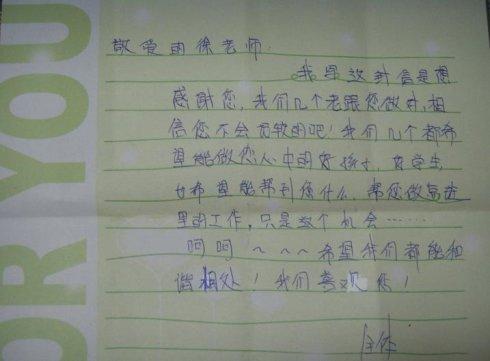 OR YOU
敬爱的徐老师:
我写这封信是想
感谢您,我们几个老跟您做对,相
信您不会计较的吧!我们几个都希
望能做您心中的好孩子,好学生
也希望能帮到您什么,帮您做
里的工作,只是 机会……
呵呵~~~希望我们都能和
谐相处!我们喜欢您!
全体